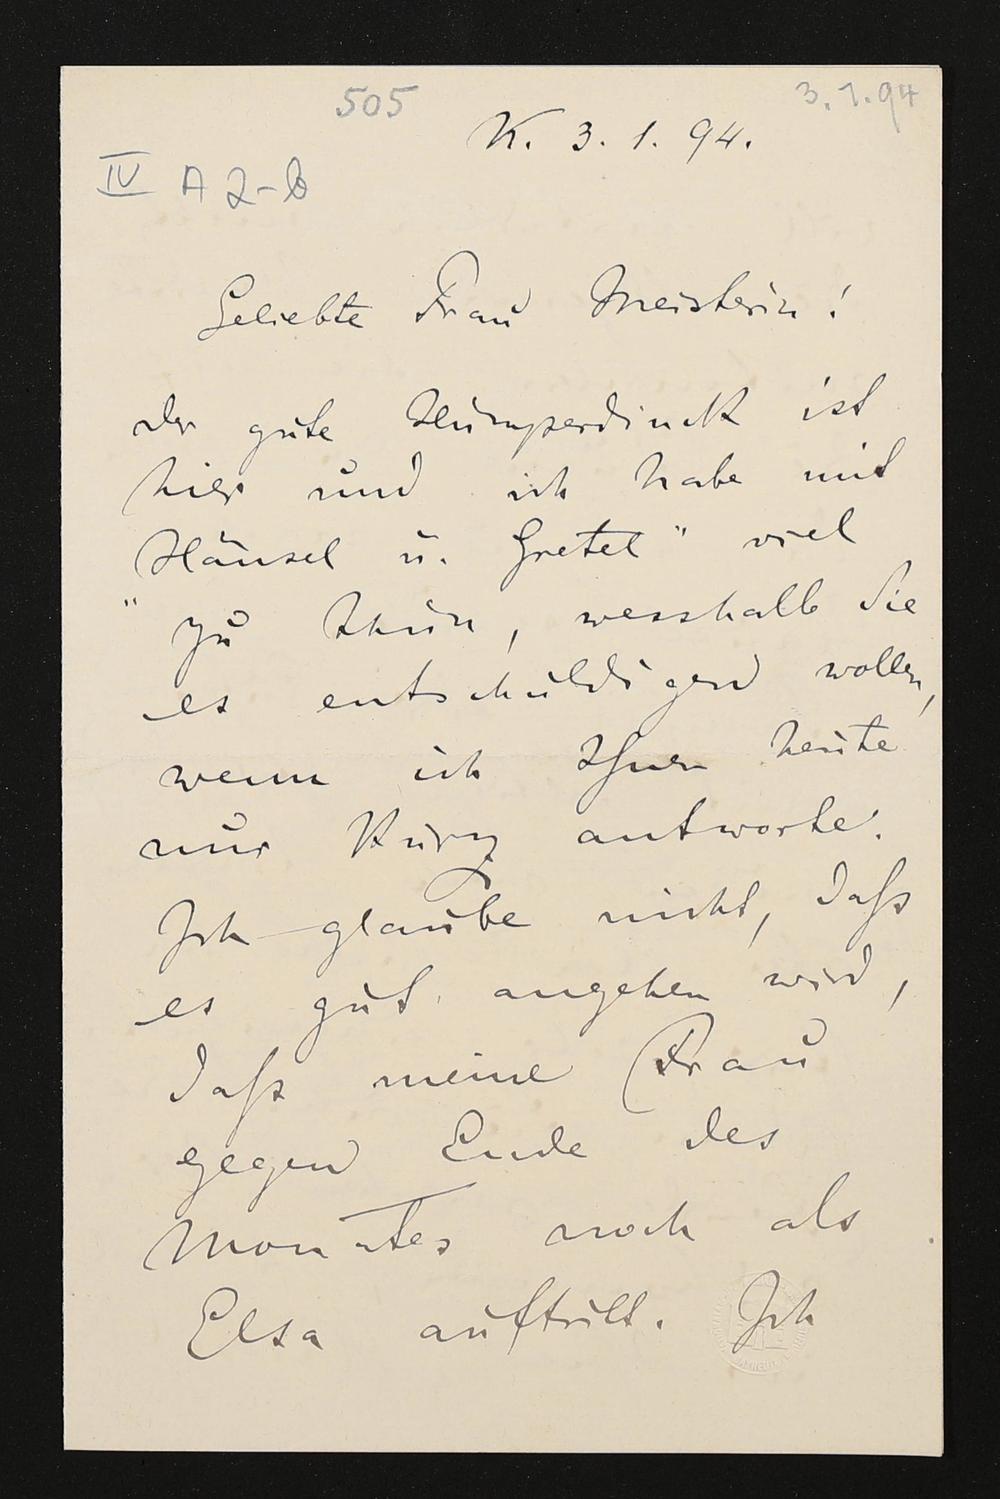 505
3.1.94
K. 3. 1. 94.
IV A 2-b
Geliebte Frau Meisterin!
der gute Humperdinck ist
hier und ich habe mit
Hänsel u. Gretel" viel
" zu thun, wesshalb Sie
es entschuldigen wollen,
wenn ich Ihnen heute
nur kurz antworte.
Ich glaube nicht, daß
es gut angehen wird,
daß meine Frau
gegen Ende des
Monates noch als
Elsa auftritt. Ich